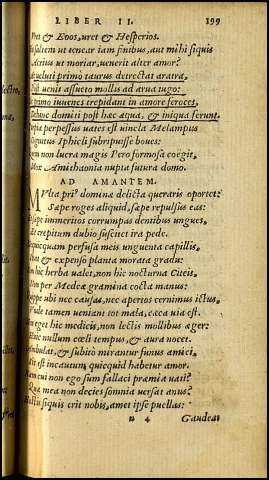 LIBER II. 199
et Eoos, uret & Hesperios.
saltem ut tenear iam finibus, aut mihi siquis
Acrius ut moriar, uenerit alter amor?
ueluti primò taurus detrectat aratra,
Post uenit assueto mollis ad arua iugo:
primo iuuenes trepidant in amore feroces,
Dehinc domiti post hæc æqua, & iniqua ferunt.
perpessus uates est uincla Melampus
Cognitus Iphicli subripuisse boues:
non lucra magis Pero formosa coëgit,
Mox Amithaonia nupta futura domo.
AD AMANTEM.
Multa pri9 domina delicta queraris oportet:
Sæpe roges aliquid, sæpe repulsus eas:
sæpe immeritos corrumpas dentibus ungues,
Et crepitum dubio suscitet ira pede.
Nequicquam perfusa meis unguenta capillis,
Ibat & expenso planta morata gradu:
Non hic herba ualet, non hic nocturna Citeis,
Non per Medeæ gramina cocta manus:
Quippe ubi nec causas, nec apertos cernimus ictus,
Vnde tamen ueniant tot mala, cæca uia est.
Non eget hic medicis, non lectis mollibus æger:
Huic nullum cœli tempus, & aura nocet.
Ambulat, & subitò mirantur funus amici,
Sic est incautum, quicquid habetur amor.
Nam cui non ego sum fallaci præmia uati?
Quæ mea non decies somnia uersat anus?
Hostis siquis erit nobis, amet ipse puellas:
n 4 Gaudeat